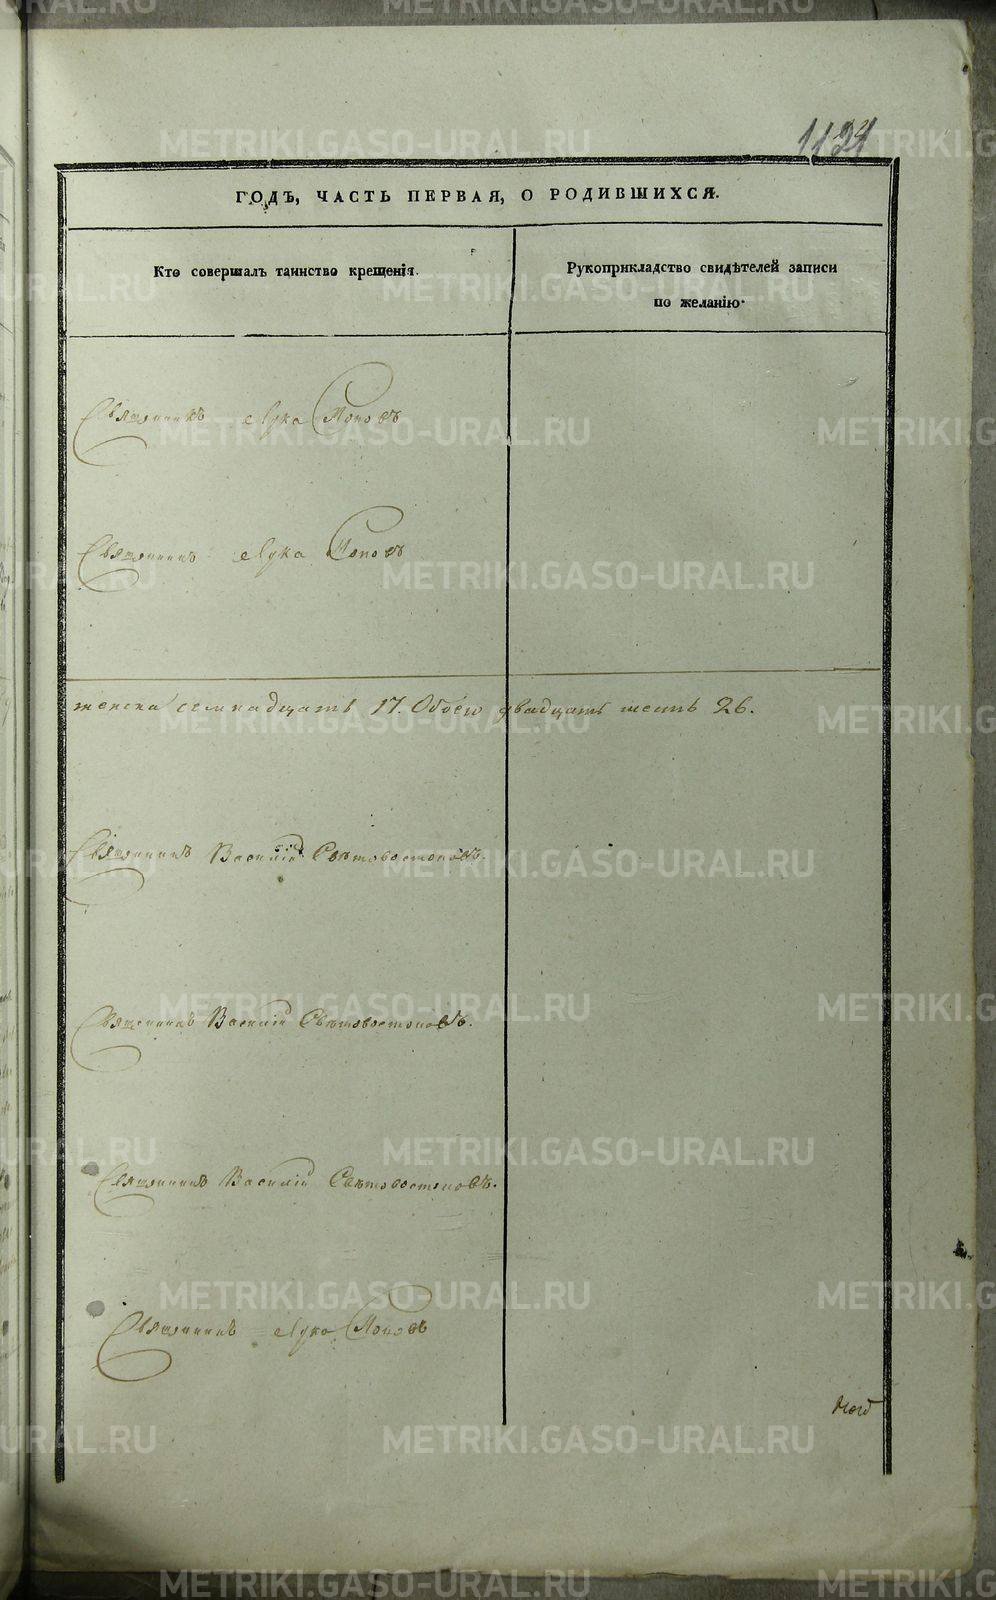 1124
ГОДЪ, ЧАСТЬ ПЕРВАЯ, О РОДИВШИХСЯ.
Кто совершалъ таинство крещенія.
Рукоприкладство свидѣтелей записи
по желанію.
Священникъ Лука Поповъ
Священникъ Лука Поповъ
женска семнадцать 17. Обоего двадцать шесть 26.
Священникъ Василій Свѣтовостоковъ.
Священникъ Василій Свѣтовостоковъ.
Священникъ Василій Свѣтовостоковъ.
Священникъ Лука Поповъ
METRIKI.GASO-URAL.RU